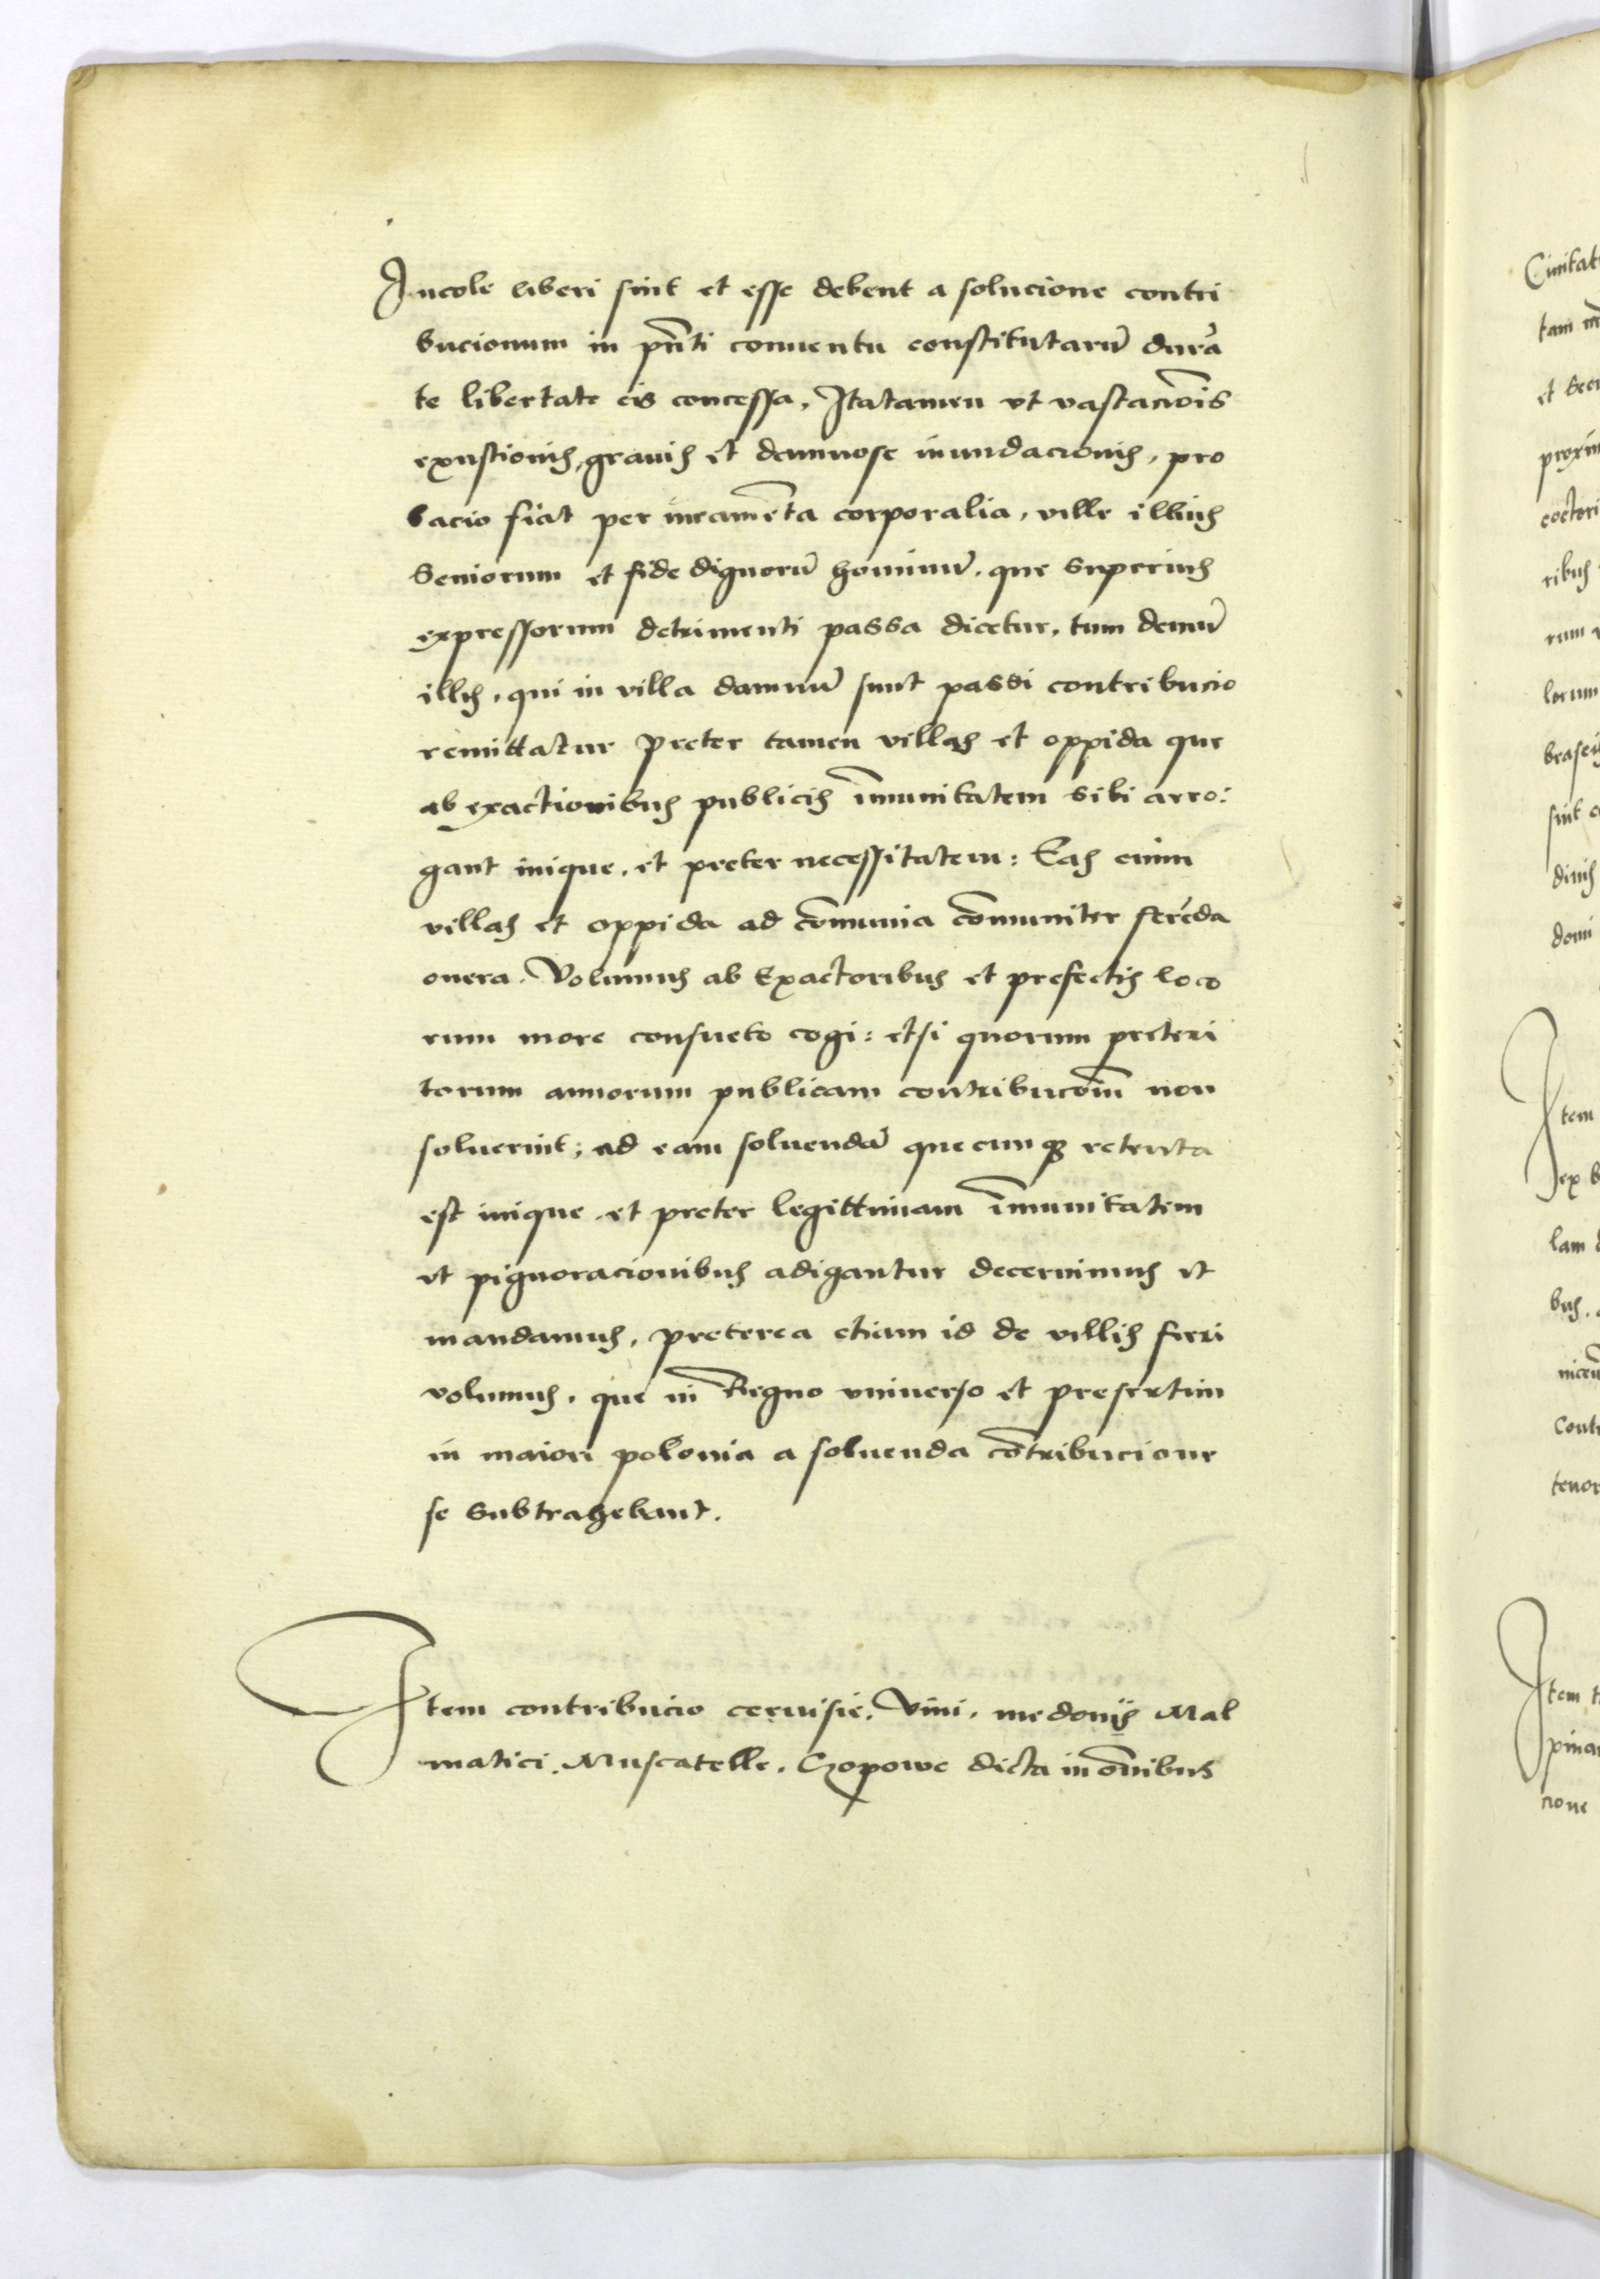 Incole liberi sint et esse debent a solucione contri
bucionum in pñti conuentu constitutarū durā
te libertate eis concessa. Itatamen vt vastacōis
exustionis, grauis et damnose inundacionis, pro
bacio fiat per iuramēta corporalia, ville illius
Seniorum et fide dignorū hominū, que superius
expressorum detrimenti passa dicetur, tum demū
illis, qui in villa damnū sunt passi contribucio
remittatur preter tamen villas et oppida que
ab exactionibus publicis īmunitatem sibi arro:
gant inique, et preter necessitatem: Eas enim
villas et oppida ad cōmunia cōmuniter ferēda
onera. Volumus ab Exactoribus et prefectis loco
rum more consueto cogi: etsi quorum preteri
torum annorum publicam contribucōm̄ non
soluerint; ad eam soluendā quecunqȝ retenta
est inique et preter legittimam īmunitatem
vt pignoracionibus adigantur decernimus et
mandamus, preterea etiam id de villis fieri
volumus, que in Regno vniuerso et presertim
in maiori polonia a soluenda cōtribucione
se subtrahebant.
Item contribucio ceruisie, Vini, medonis Mal
matici, Muscatelle, Czopowe dicta in ōnibus
Ciuitat
tam
et
proxim
coctori
ribus
rum
lorum
sint
domi
Item
ex
lam
bus.
Cont
tenor
Item
cione